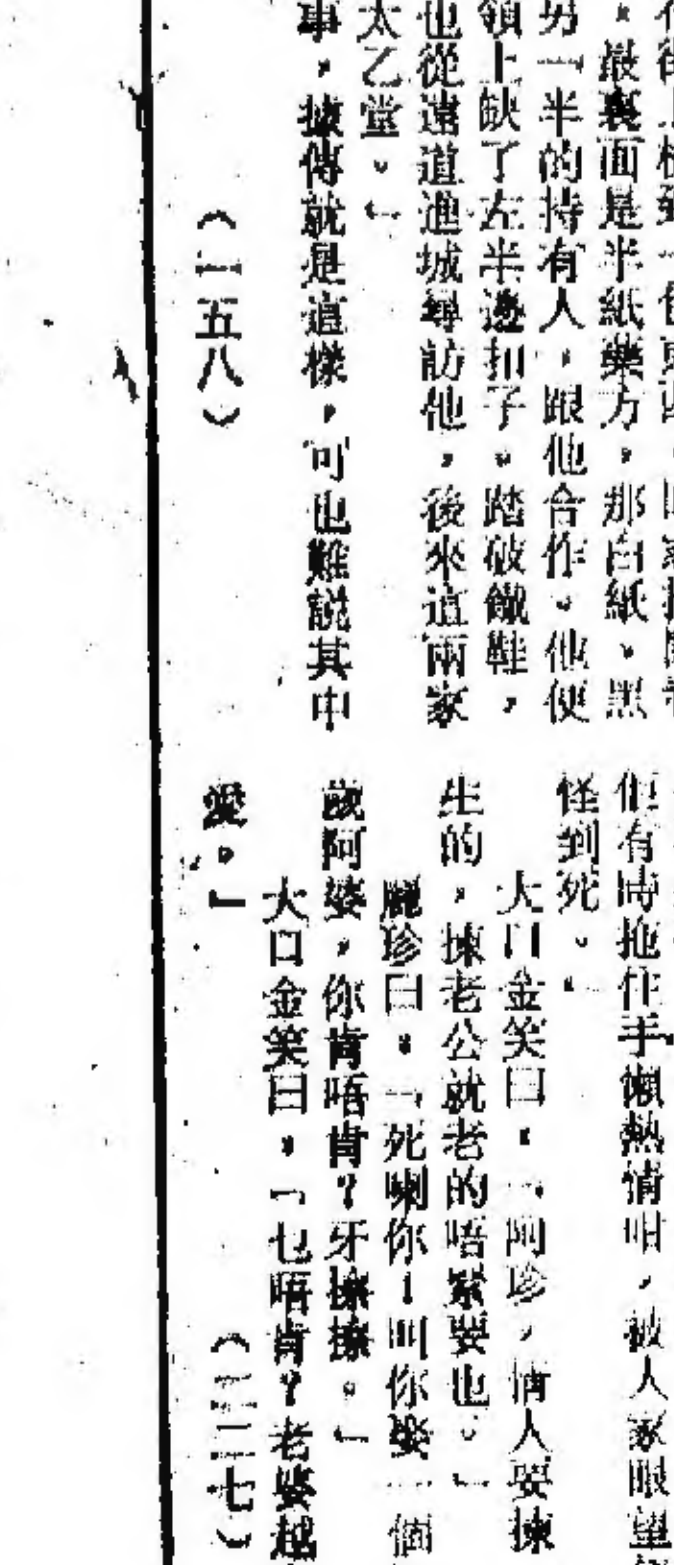 最裏面是半紙藥方，那白紙、黑
另一半的持有人，跟他合作。他便
領上缺了左半邊扣子。踏破鐵鞋，
也從遠道進城尋訪他，後來這兩家
太乙堂。」
事，據傳就是這樣，可也難説其中
（一五八）
但有時拖住手懶熱情咁，被人家眼望
怪到死。」
大口金笑曰：「阿珍，情人要揀
生的，揀老公就老的唔緊要也。」
麗珍曰：「死喇你！叫你娶一個
歲阿婆，你肯唔肯？牙擦擦。」
大口金笑曰：「乜唔肯？老婆越
愛。」
二七）